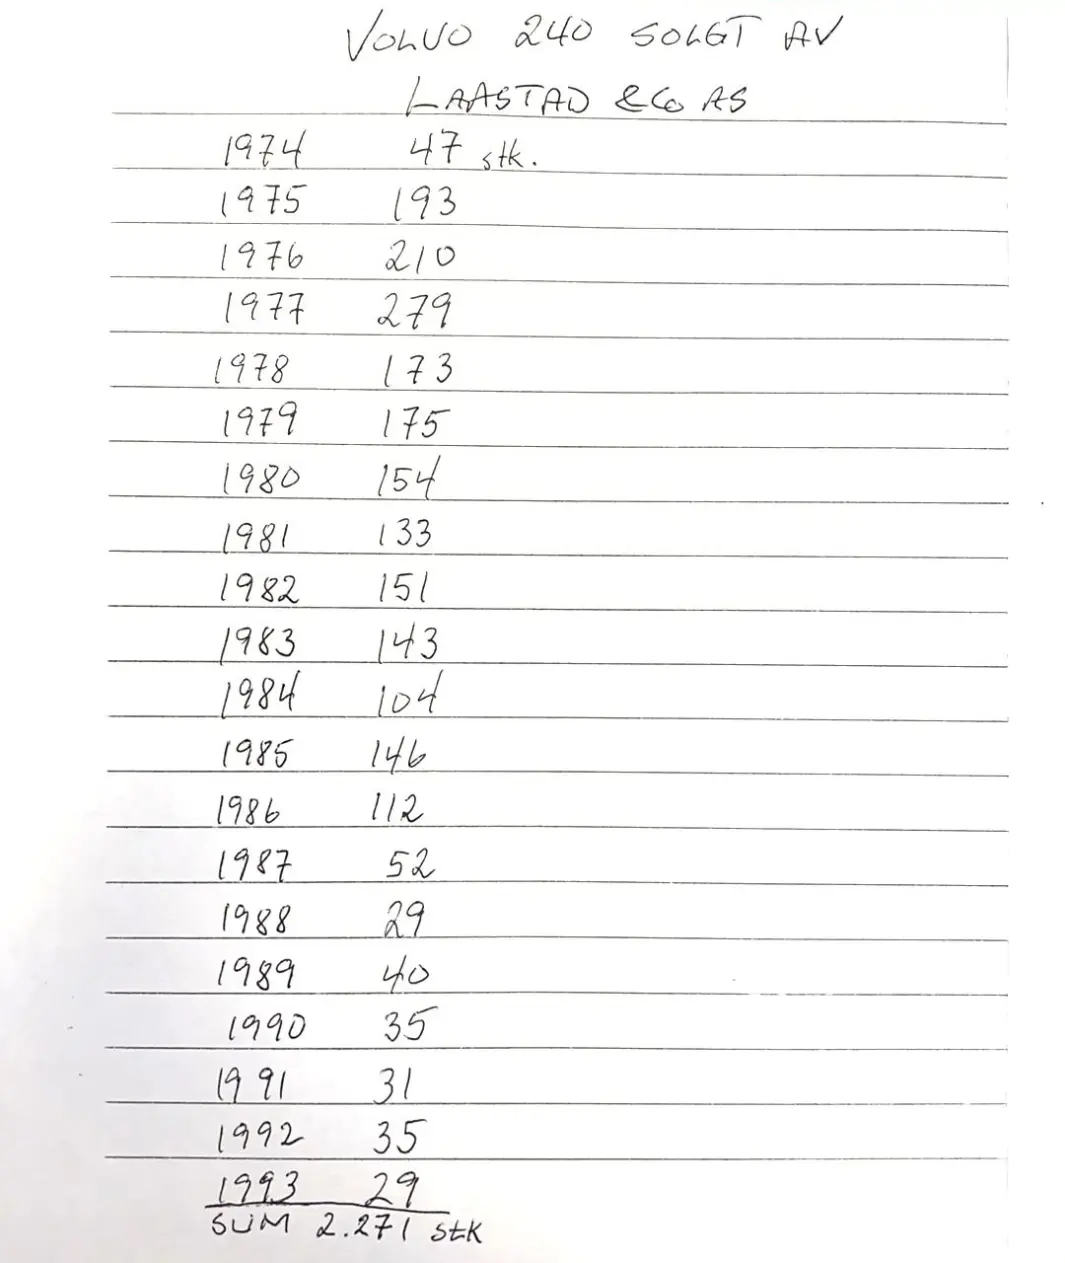 VOLVO 240 SOLGT AV
LAASTAD & Co AS
1974 47 stk.
1975 193
1976 210
1977 279
1978 173
1979 175
1980 154
1981 133
1982 151
1983 143
1984 104
1985 146
1986 112
1987 52
1988 29
1989 40
1990 35
1991 31
1992 35
1993 29
SUM 2.271 stk